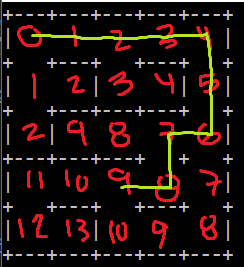 0 1 2 3 4
1 2 3 4 5
2 9 8 7 6
11 10 9 8 7
12 13 10 9 8